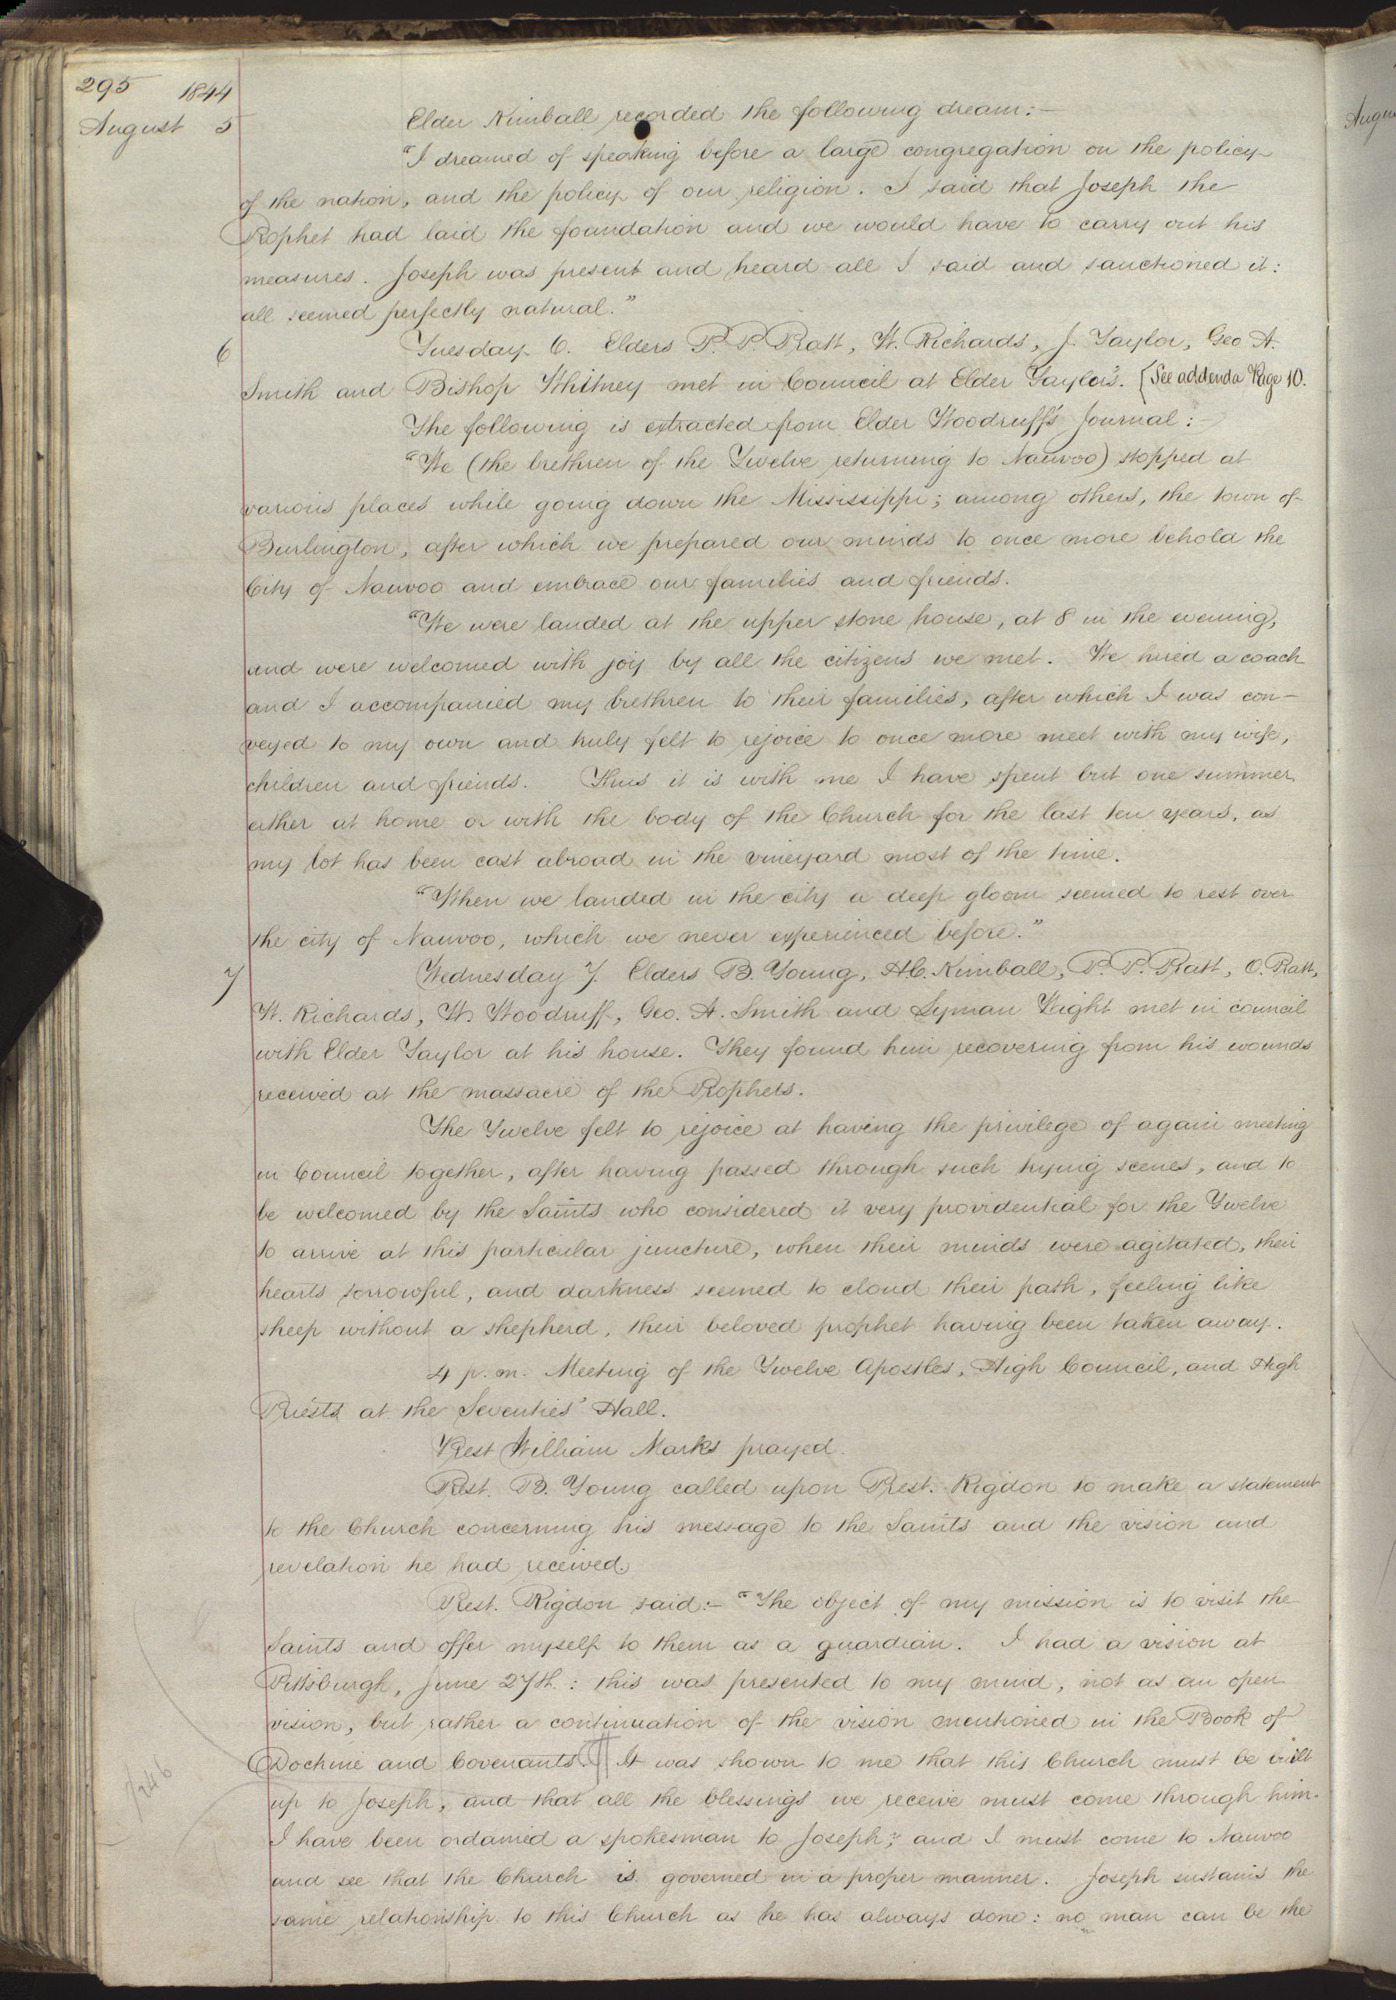 295 1844
August 5
Elder Kimball recorded the following dream:—
"I dreamed of speaking before a large congregation on the policy
of the nation, and the policy of our religion. I said that Joseph the
Prophet had laid the foundation and we would have to carry out his
measures. Joseph was present and heard all I said and sanctioned it:
all seemed perfectly natural."
6 Tuesday 6. Elders P. P. Pratt, W. Richards, J. Taylor, Geo A.
Smith and Bishop Whitney met in Council at Elder Taylor's. [See addenda Page 10.
The following is extracted from Elder Woodruff's Journal:—
"We (the brethren of the Twelve returning to Nauvoo) stopped at
various places while going down the Mississippi; among others, the town of
Burlington, after which we prepared our minds to once more behold the
City of Nauvoo and embrace our families and friends.
"We were landed at the upper stone house, at 8 in the evening,
and were welcomed with joy by all the citizens we met. We hired a coach
and I accompanied my brethren to their families, after which I was con-
veyed to my own and truly felt to rejoice to once more meet with my wife,
children and friends. Thus it is with me I have spent but one summer
either at home or with the body of the Church for the last ten years, as
my lot has been cast abroad in the vineyard most of the time.
"When we landed in the city a deep gloom seemed to rest over
the city of Nauvoo, which we never experienced before."
7 Wednesday 7. Elders B. Young, H. C. Kimball, P. P. Pratt, O. Pratt,
W. Richards, W. Woodruff, Geo. A. Smith and Lyman Wight met in council
with Elder Taylor at his house. They found him recovering from his wounds
received at the massacre of the Prophets.
The Twelve felt to rejoice at having the privilege of again meeting
in Council together, after having passed through such trying scenes, and to
be welcomed by the Saints who considered it very providential for the Twelve
to arrive at this particular juncture, when their minds were agitated, their
hearts sorrowful, and darkness seemed to cloud their path, feeling like
sheep without a shepherd, their beloved prophet having been taken away.
4 p.m. Meeting of the Twelve Apostles, High Council, and High
Priests at the Seventies' Hall.
Prest William Marks prayed.
Prest. B. Young called upon Prest. Rigdon to make a statement
to the Church concerning his message to the Saints and the vision and
revelation he had received.
Prest. Rigdon said:— "The object of my mission is to visit the
Saints and offer myself to them as a guardian. I had a vision at
Pittsburgh, June 27th.: this was presented to my mind, not as an open
vision, but rather a continuation of the vision mentioned in the Book of
Doctrine and Covenants. ¶ It was shown to me that this Church must be built
up to Joseph, and that all the blessings we receive must come through him.
I have been ordained a spokesman to Joseph; and I must come to Nauvoo
and see that the Church is governed in a proper manner. Joseph sustains the
same relationship to this Church as he has always done: no man can be the